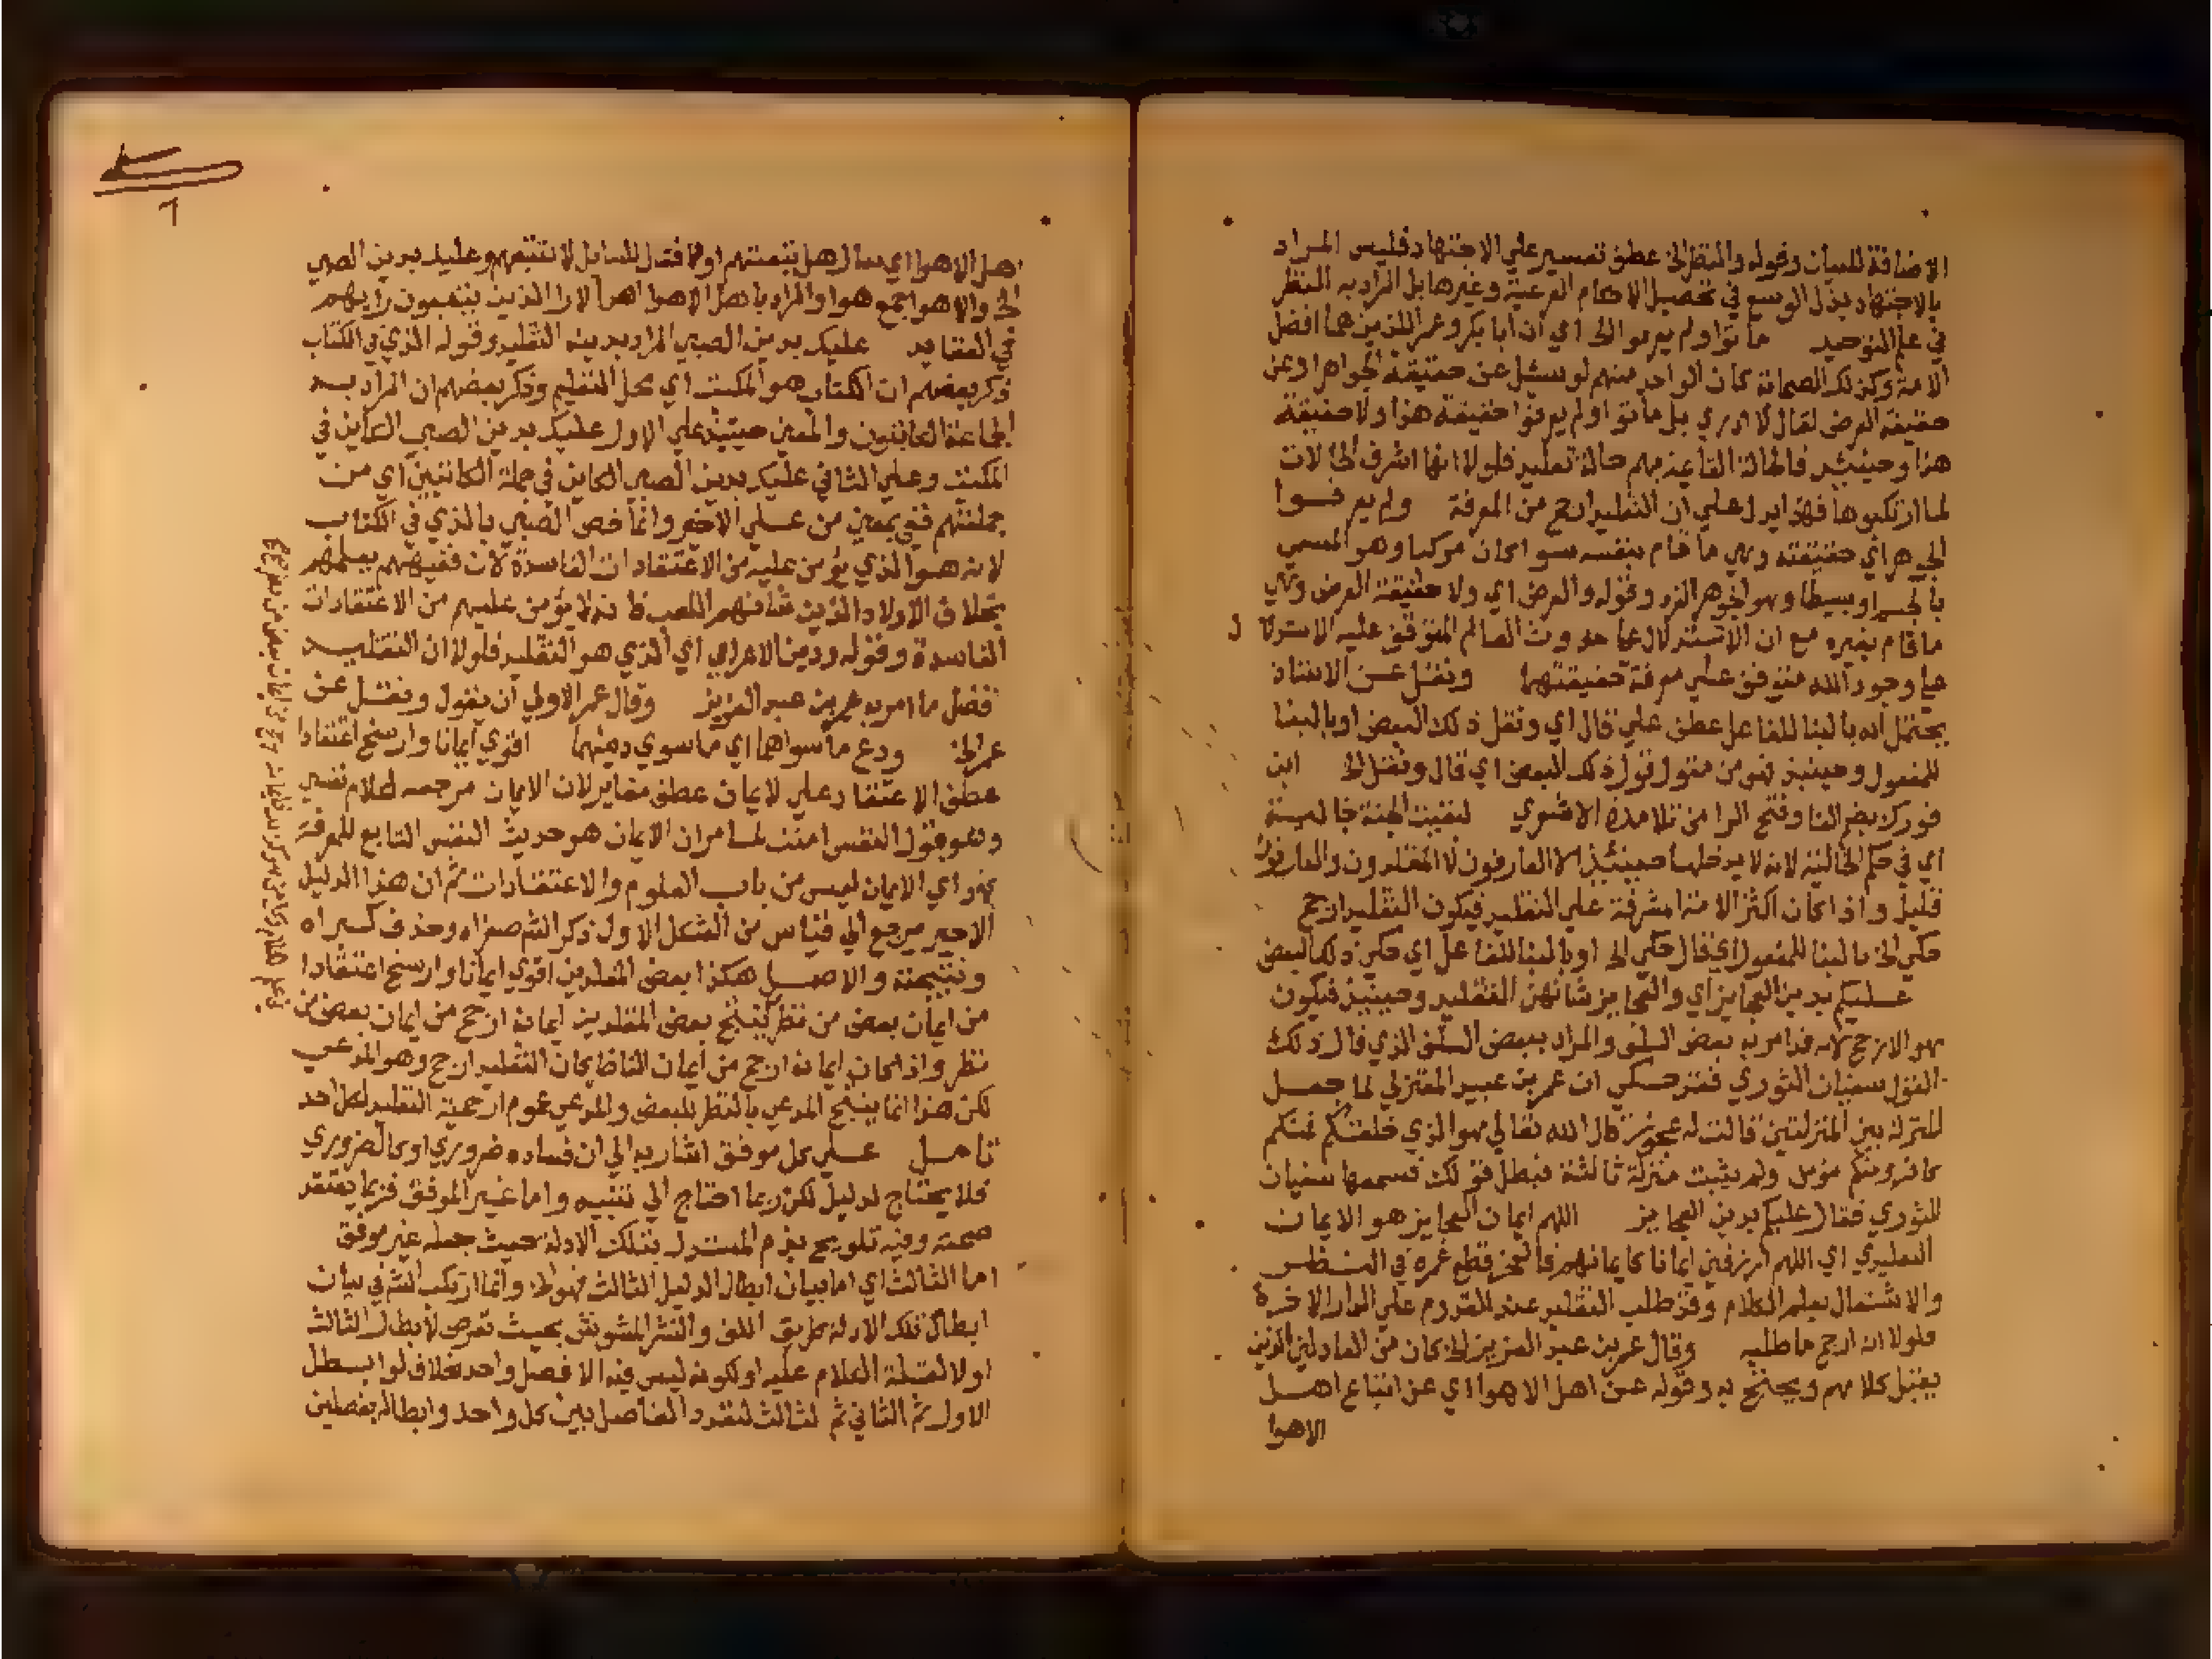 الاضافة للبيان وقوله والنظر الخ عطف تفسير علي الاجتهاد فليس المراد
بالاجتهاد بذل الوسع في تحصيل الاحكام الفرعية وغيرها بل المراد به النظر
في علم التوحيد ماتوا ولم يعرفوا الخ اي ان ابا بكر وعمر اللذين هما افضل
الامة وكذلك الصحابة كان الواحد منهم لو سئل عن حقيقة الجواهر او عن
حقيقة العرض لقال لا ادري بل ماتوا ولم يعرفوا حقيقة هذا ولا حقيقة
هذا وحينئذ فالحالة القاعة بهم حالة تقليد فلولا انها اشرف الحالات
لما ارتكبوها فهذا يدل علي ان التقليد ارجح من المعرفة ولم يعرفوا
الجوهر اي حقيقته وهي ما قام بنفسه سوا كان مركبا وهو المسمي
بالجسم او بسيطا وهو الجوهر الفرد وقوله والعرض اي ولا حقيقة العرض وهي
ما قام بغيره مع ان الاستدلال علي حدوث العالم المتوقف عليه الاستدلال
علي وجود الله متوقف علي معرفة حقيقتهما ونقل عن الاستاذ
يحتمل انه بالبنا للفاعل عطف علي قال اي ونقل ذلك البعض او بالبنا
للمفعول وحينئذ فهو من مقول قول ذلك البعض اي قال ونقل الخ ابن
فورك بضم الفا وفتح الرا من تلامذة الاشعري لبقيت الجنة خالية
اي في حكم الخالية لانه لا يدخلها حينئذ الا العارفون لا المقلدون والعارفون
قليل واذا كان اكثر الامة مشرفة علي التقليد فيكون التقليد ارجح
حكي الخ بالبنا للمفعول اي قال حكي الخ او بالبنا للفاعل اي حكي ذلك البعض
عليكم بدين العجايز اي والعجايز شانهن التقليد وحينئذ فيكون
هو الارجح لانه قد امر به بعض السلف والمراد ببعض السلف الذي قال ذلك
القول سفيان الثوري فقد حكي ان عمر بن عبيد المعتزلي لما جعل
المنزلة بين المنزلتين قالت له عجوز قال الله تعالي هو الذي خلقكم فمنكم
كافر ومنكم مؤمن ولم يثبت منزلة ثالثة فبطل قولك فسمعها سفيان
الثوري فقال عليكم بدين العجايز اللهم ايمان العجايز هو الايمان
التقليدي اي اللهم ارزقني ايمانا كايمانهم فالفخر قطع عمره في النظر
والاشتغال بعلم الكلام وقد طلب التقليد عند القدوم علي الدار الاخرة
فلولا انه ارجح ما طلبه وقال عمر بن عبد العزيز الخ كان من العادلين الذين
يقبل كلامهم ويحتج به وقوله عن اهل الاهوا اي عن اتباع اهل
الاهوا
٦
اهل الاهوا اي هل تتبعهم اولا فقال للسايل لا تتبعهم وعليك بدين الصبي
الخ والاهوا جمع هوا والمراد باهل الاهوا اهل الارا الذين يتبعون رايهم
في العقايد عليك بدين الصبي المراد بدينه التقليد وقوله الذي في الكتاب
ذكر بعضهم ان الكتاب هو المكتب اي محل التعليم وذكر بعضهم ان المراد به
الجماعة الكاتبون والمعني حينئذ علي الاول عليك بدين الصبي الكاين في
المكتب وعلي الثاني عليك بدين الصبي الكاين في جملة الكاتبين اي من
جملتهم ففي بمعني من علي الاخير وانما خص الصبي بالذي في الكتاب
لانه هو الذي يؤمن عليه من الاعتقادات الفاسدة لان فقيههم يعلمهم
بخلاف الاولاد الذين شانهم اللعب فانه لا يؤمن عليهم من الاعتقادات
الفاسدة وقوله ودين الاعرابي اي الذي هو التقليد فلولا ان التقليد
افضل ما امر به عمر بن عبد العزيز وقال عمر الاولي ان يقول ونقل عن
عمر الخ ودع ما سواها اي ما سوي دينهما اقوي ايمانا وارسخ اعتقادا
عطف الاعتقاد علي الايمان عطف مغاير لان الايمان مرجعه لكلام نفسي
وهو قول النفس امنت لما مر ان الايمان هو حديث النفس التابع للمعرفة
اي الايمان ليس من باب العلوم والاعتقادات ثم ان هذا الدليل
الاخير مرجع الي قياس من الشكل الاول ذكر الشم صغراه وحذف كبراه
ونتيجته والاصل هكذا بعض المقلدين اقوي ايمانا وارسخ اعتقادا
من ايمان بعض من نظر ينتج بعض المقلدين ايمانه ارجح من ايمان بعض من
نظر واذا كان ايمانه ارجح من ايمان الناظر كان التقليد ارجح وهو المدعي
لكن هذا انما ينتج المدعي بالنظر للبعض والمدعي عموم ارجحية التقليد لكل احد
تامل علي كل موفق اشار به الي ان فساده ضروري او كالضروري
فلا يحتاج لدليل لكن ربما احتاج الي تنبيه واما غير الموفق فربما يعتقد
صحته وفيه تلويح بذم المستدل بتلك الادلة حيث جعله غير موفق
اما الثالث اي اما بيان ابطال الدليل الثالث فهو الخ وانما ارتكب الشم في بيان
ابطال تلك الادلة طريق اللف والنشر المشوش بحيث تعرض لابطال الثالث
اولا لقلة الكلام عليه او لكونه ليس فيه الا فصل واحد بخلاف لو ابطل
الاول ثم الثاني ثم الثالث لتعدد الفاصل بين كل واحد وابطاله بفصلين